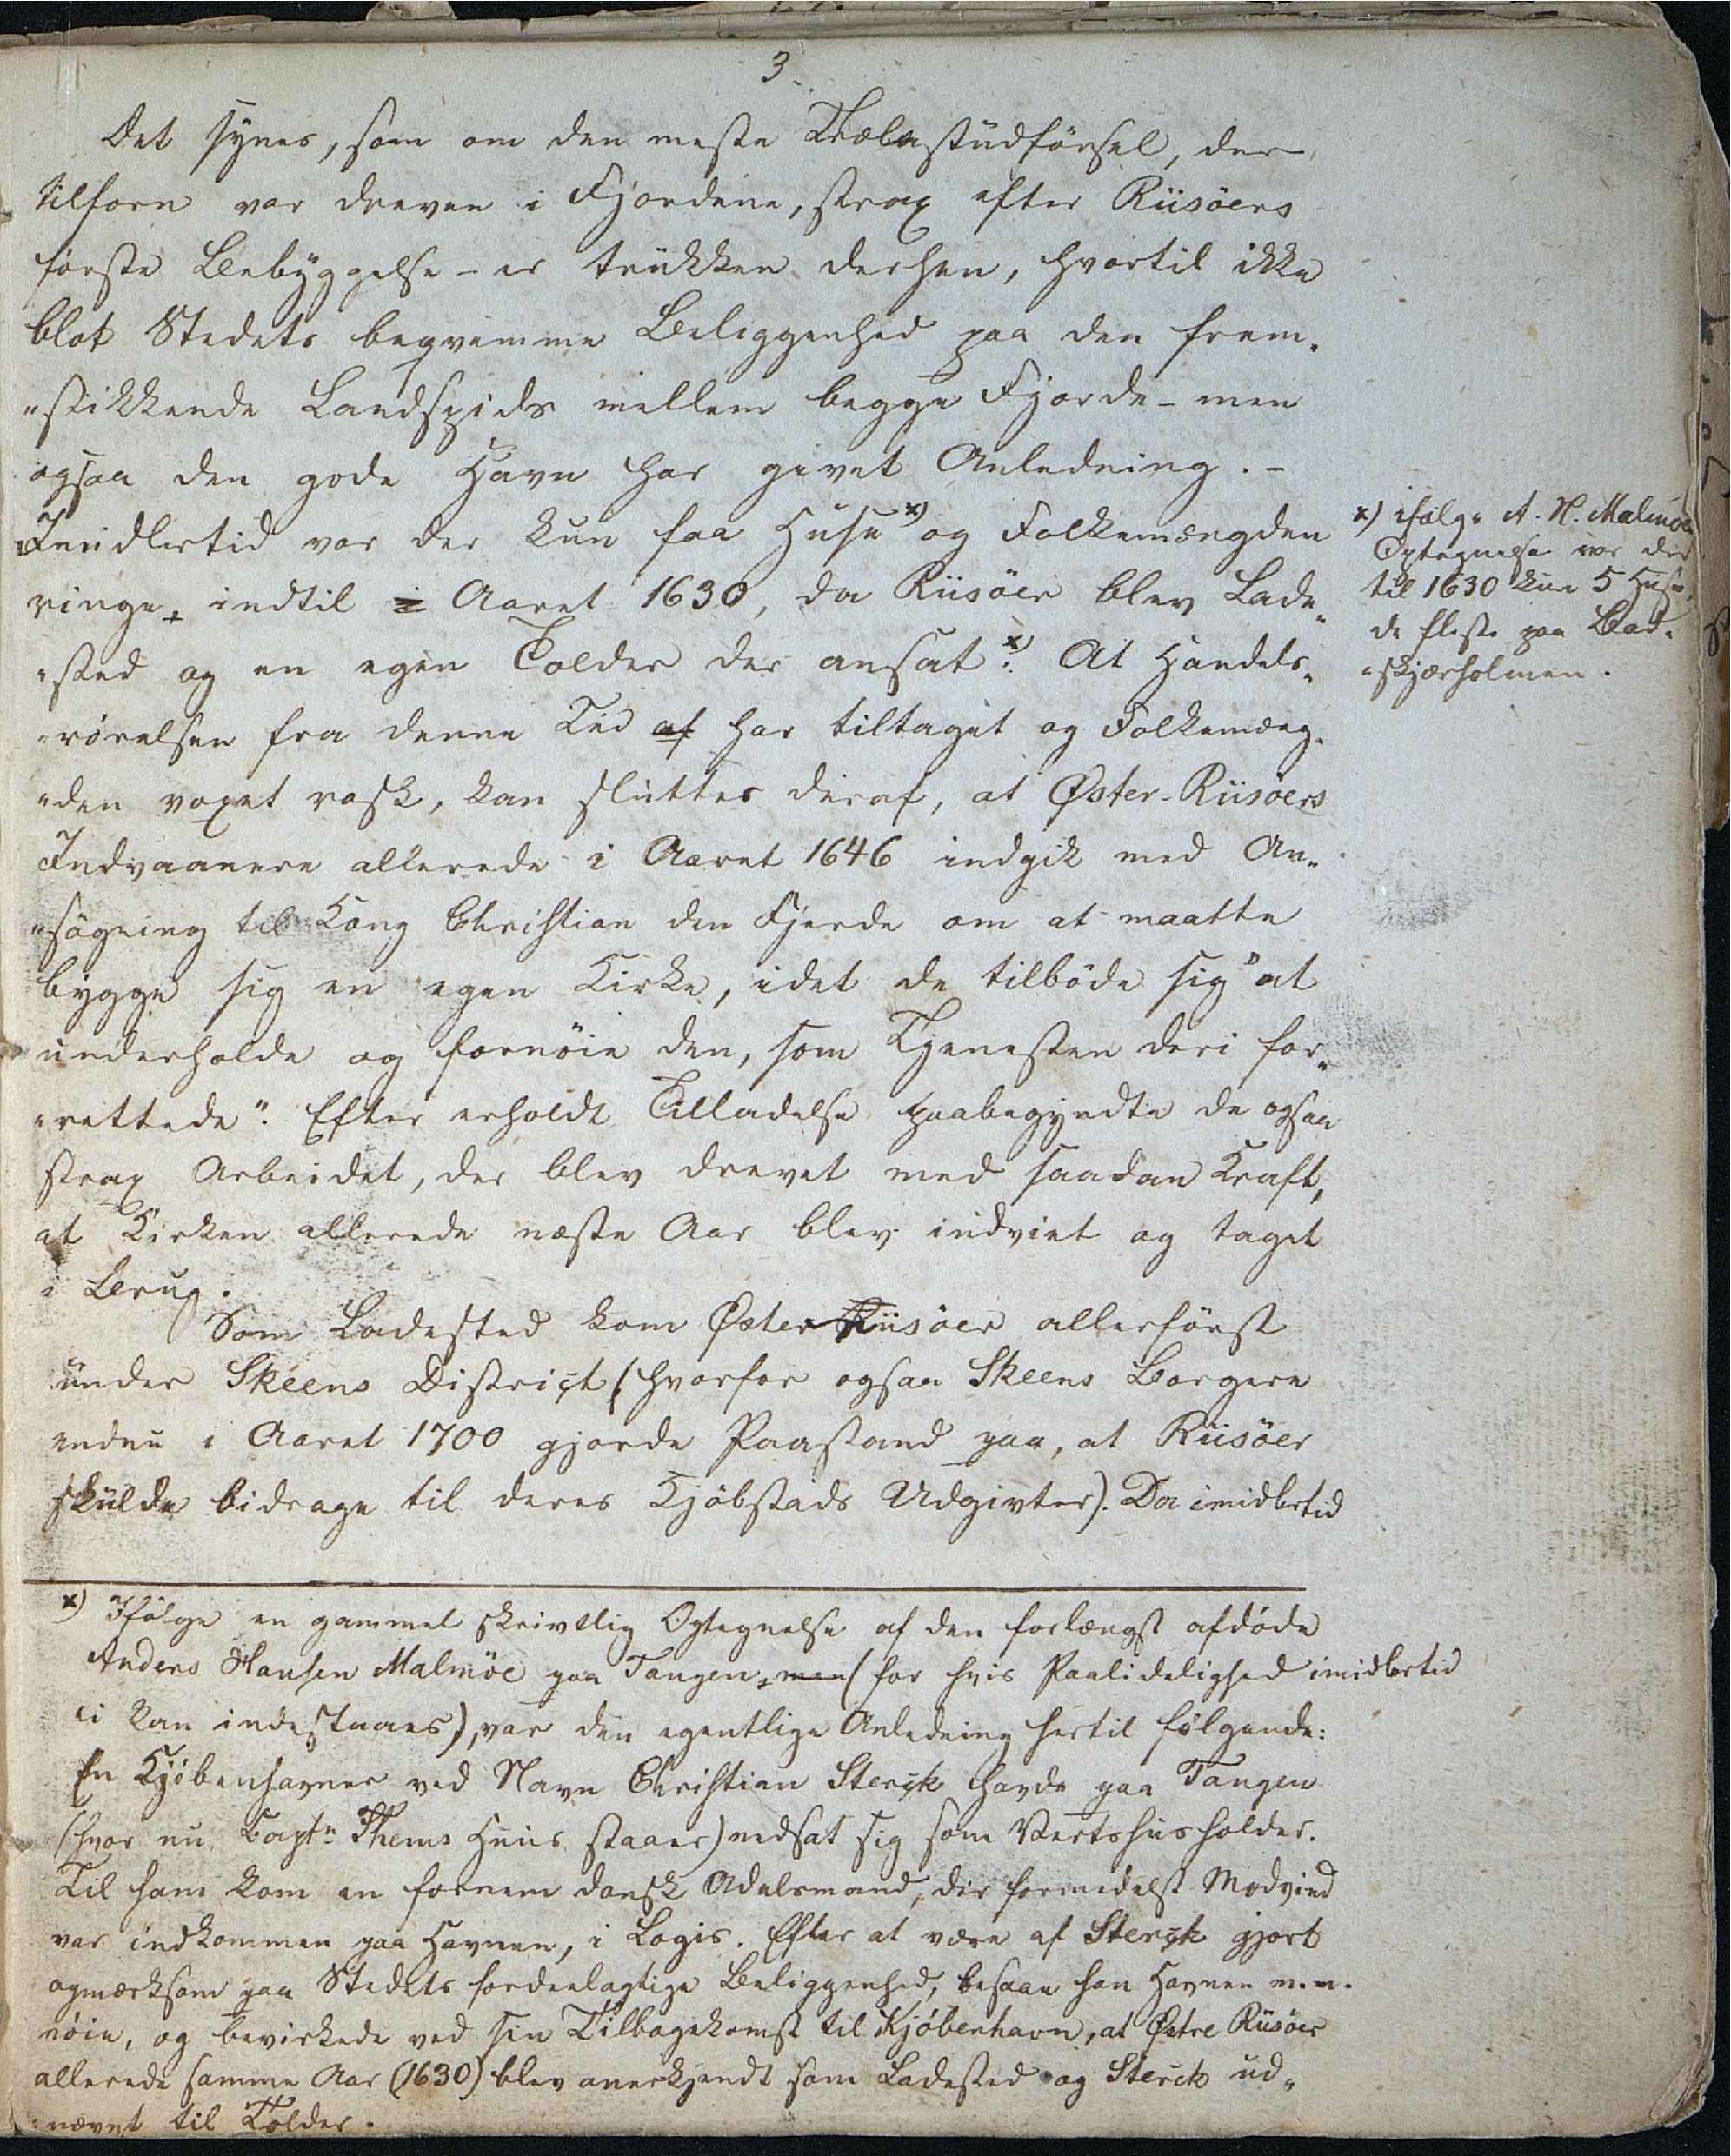 3.
Det synes, som om den meste Trælastudförsel, der
tilforn var dreven i Fjordene, strax efter Riisöers
förste Bebyggelse - er trukken derhen, hvortil ikke
blot Stedets beqvemme Beliggenhed paa den frem-
"stikkende Landspids mellem begge Fjorde - men
ogsaa den gode Havn har givet Anledning. -
Imidlertid var der kun faa Huse x) og Folkemængden
ringe, indtil i Aaret 1630, da Riisöer blev Lade"
"sted og en egen Tolder der ansat x). At Handels"
"rörelsen fra denne Tid af har tiltaget og Folkemæng-
"den voxet rask, kan sluttes deraf, at Øster-Riisöers
Indvaanere allerede i Aaret 1646 indgik med An"
"sögning til Kong Christian den Fjerde om at maatte
bygge sig en egen Kirke, idet de tilböde sig "at
underholde og fornöie den, som Tjenesten deri for"
"rettede". Efter erholdt Tilladelse paabegyndte de ogsaa
strax Arbeidet, der blev drevet med saadan Kraft,
at Kirken allerede næste Aar blev indviet og taget
i Brug.
Som Ladested kom Øster Riisöer allerförst
under Skeens District (hvorfor ogsaa Skeens Borgere
endnu i Aaret 1700 gjorde Paastand paa, at Riisöer
skulde bidrage til deres Kjöbstads Udgivter). Da imidlertid
x) ifölge A. H. Malmöes
Optegnelse var der
til 1630 kun 5 Huse,
de fleste paa Bad-
"skjærholmen.
x) Ifölge en gammel skrivtlig Optegnelse af den forlængst afdöde
Anders Hansen Malmöe paa Tangen, men (for hvis Paalidelighed imidlertid
ei kan indestaaes), var den egentlige Anledning hertil fölgende:
En Kjöbenhavner ved Navn Christian Sterck havde paa Tangen
(hvor nu Captn Thems Huus staaer) nedsat sig som Vertshusholder.
Til ham kom en fornem dansk Adelsmand, der formedelst Modvind
var indkommen paa Havnen, i Logis. Efter at være af Sterck gjort
opmærksom paa Stedets fordeelagtige Beliggenhed, besaae han Havnen m.m.
nöie, og bevirkede ved sin Tilbagekomst til Kjöbenhavn, at Østre Riisöer
allerede samme Aar (1630) blev anerkjendt som Ladested og Sterck ud"
"nævnt til Tolder.